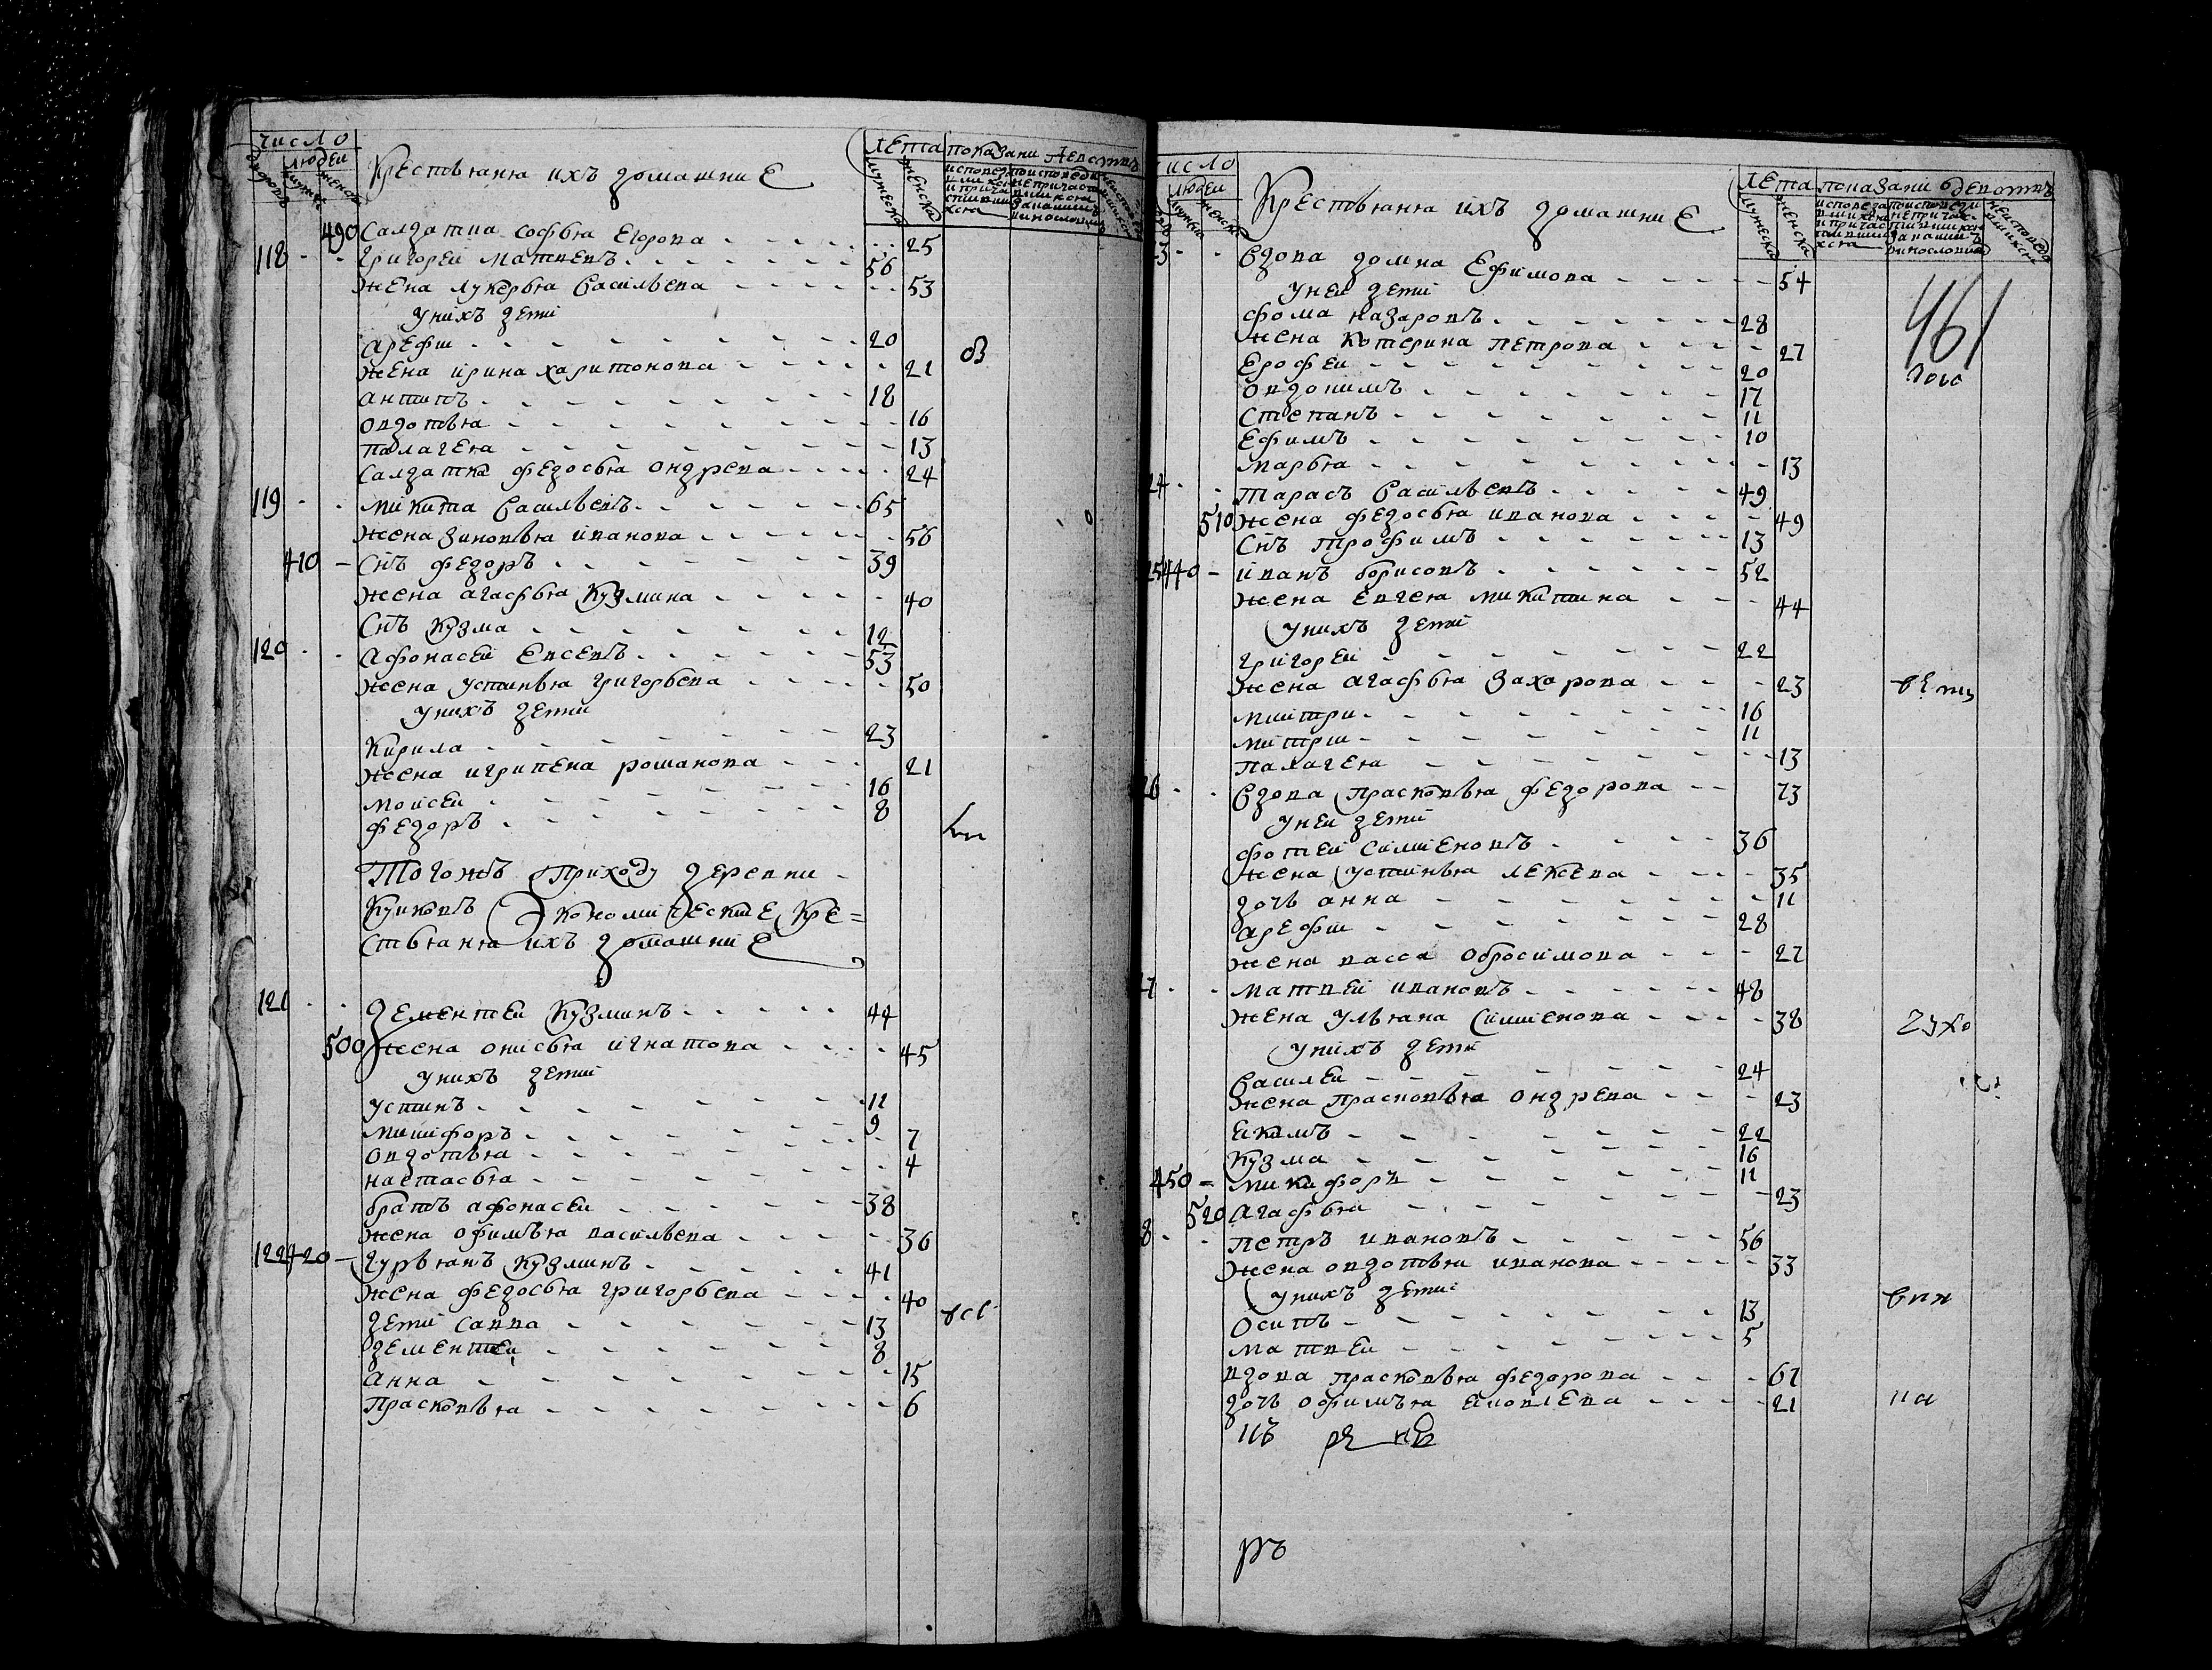 число
людей
дворовъ
мужеска
женска
Крестьяня ихъ домашние
лета
мужеска
женска
показани действъ
490 Салдатка Софья Егорова 25
118 Григорей Матвевъ 56
жена лукерья васильева 53
у нихъ дети
арефи 20
жена ирина харитонова 21
антипъ 18
овдотья 16
палагея 13
Салдатка федосья ондрева 24
119 микита васильевъ 65
жена зиновья иванова 56
410 снъ федоръ 39
жена агафья Кузмина 40
снъ Кузма 12
120 афонасей Евсевъ 53
жена устинья григорьева 50
у нихъ дети
Кирила 23
жена игрипена романова 21
мойсей 16
федоръ 8
Тогожъ приходу деревни
Куковъ Экономические Кре=
стьяня ихъ домашние
121 дементей Кузминъ 44
500 жена онисья игнатова 45
у нихъ дети
устинъ 11
микифоръ 9
овдотья 7
настасья 4
братъ афонасей 38
жена офимья васильева 36
122 420 Гурьянъ Кузминъ 41
жена федосья григорьева 40
дети савва 13
дементей 8
анна 15
Прасковья 6
число
людей
мужеска
женска
Крестьяня ихъ домашние
лета
мужеска
женска
показани действъ
461
3 вдова домна Ефимова 54
у ней дети
фома назаровъ 28
жена Котерина петрова 27
Ерофей 20
овдокимъ 17
Степанъ 11
Ефимъ 10
марья 13
24 тарасъ васильевъ 49
510 жена федосья иванова 49
снъ трофимъ 13
25 440 иванъ борисовъ 52
жена Евгея микитина 44
у нихъ дети
григорей 22
жена агафья захарова 23
митри 16
митри 11
палагея 13
26 вдова прасковья федорова 73
у ней дети
фотей Симионовъ 36
жена устинья лексева 35
дочь анна 11
арефи 28
жена васса обросимова 27
матвей ивановъ 48
жена ульяна симионова 38
у нихъ дети
василей 24
жена прасковья ондрева 23
екимъ 22
Кузма 16
450 микифоръ 11
520 агафья 23
8 петръ ивановъ 56
жена овдотья иванова 33
у нихъ дети
осипъ 13
матвей 5
вдова прасковья федорова 67
дочь офимья яковлева 21